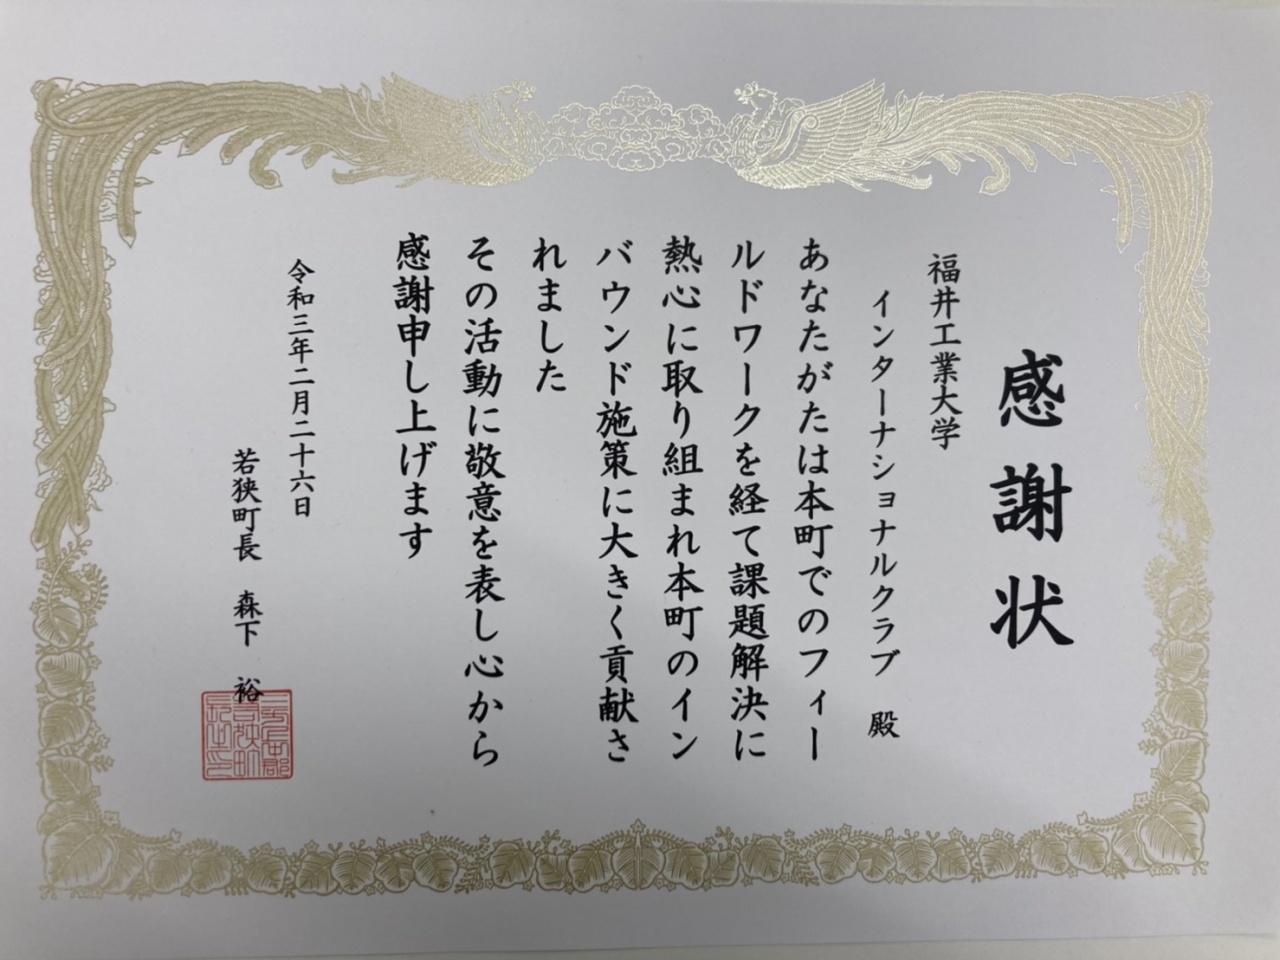 感謝状
福井工業大学
インターナショナルクラブ 殿
あなたがたは本町でのフィー
ルドワークを経て課題解決に
熱心に取り組まれ本町のイン
バウンド施策に大きく貢献さ
れました
その活動に敬意を表し心から
感謝申し上げます
令和三年二月二十六日
若狭町長 森下 裕